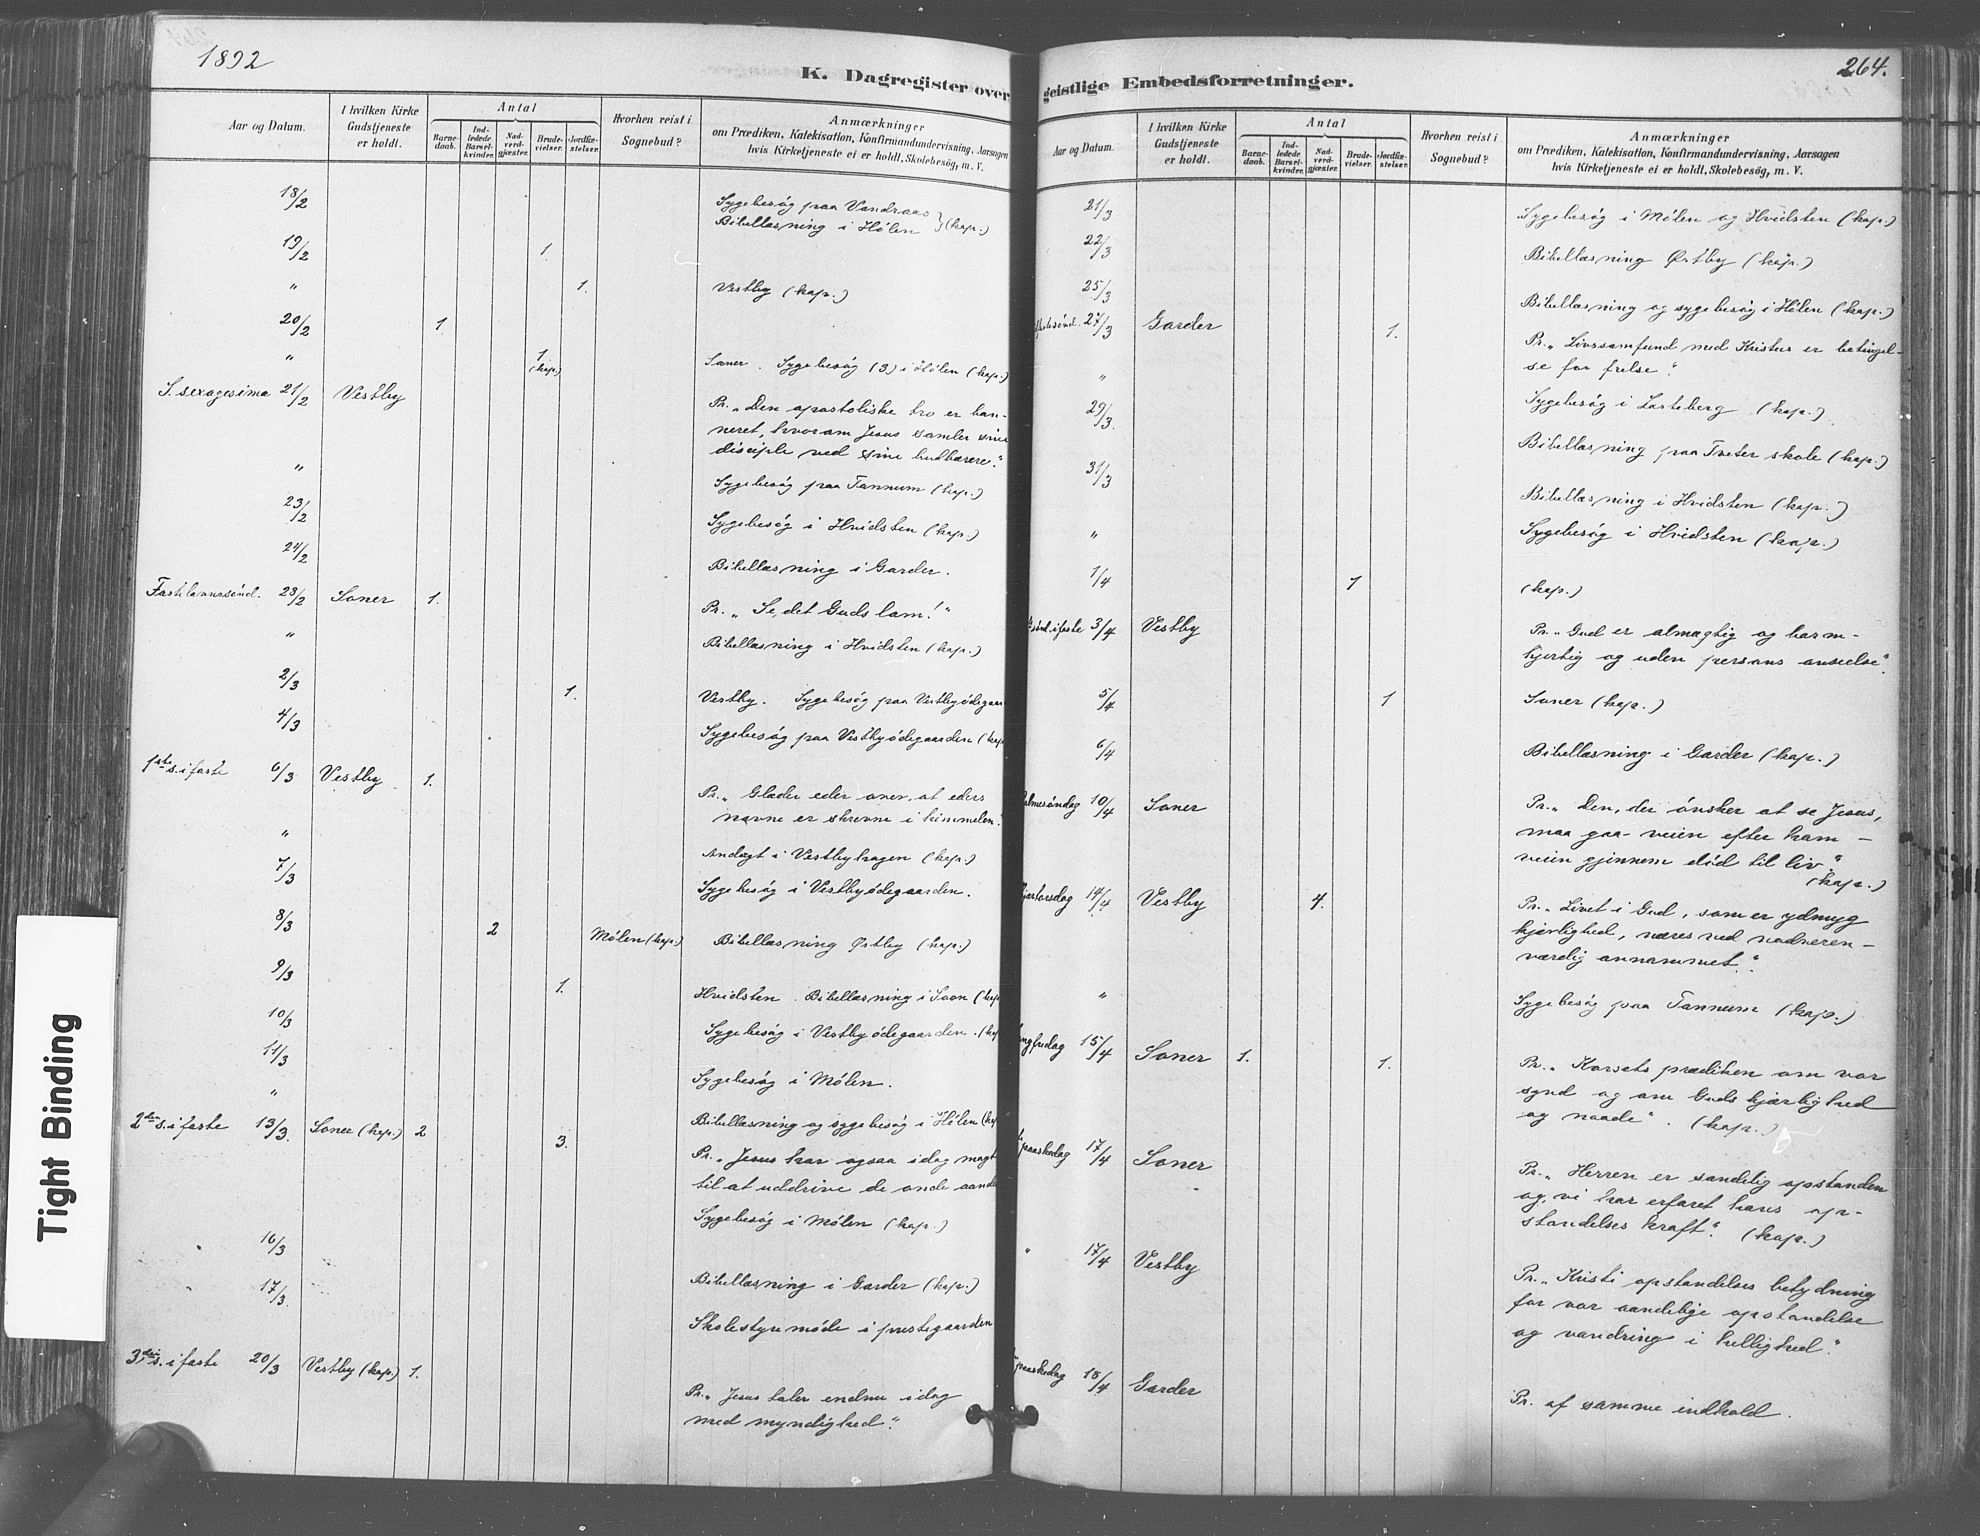 1892
K. Dagregister over
Aar og Datum.
I hvilken Kirke Gudstjeneste er holdt.
Antal
Barnedaab.
Indledede Barselkvinder.
Nadverdgjæster.
Brudevielser.
Jordfæstelser.
Hvorhen reist i Sognebud?
Anmærkninger
om Prædiken, Katekisation, Konfirmandundervisning, Aarsagen
hvis Kirketjeneste ei er holdt, Skolebesøg, m. V.
18/2 Sygebesøg paa Vandraas
Bibellæsning i Hølen } (kap.)
19/2 1.
" 1. Vestby (kap.)
20/2 1.
" 1. (kap) Soner. Sygebesøg (3) i Hølen (kap.)
S. sexagesima 21/2 Vestby
Pr. „Den apostoliske tro er ban-
neret, hvorom Jesus samler sine
disciple ved sine budbærere."
" Sygebesøg paa Tannum (kap.)
23/2 Sygebesøg i Hvidsten (kap.)
24/2 Bibellæsning i Garder.
Fastelavnssønd. 23/2 Soner 1. Pr. „Se, det Guds lam!"
" Bibellæsning i Hvidsten (kap.)
2/3 1. Vestby. Sygebesøg paa Vestbyødegaar
4/3 Sygebesøg paa Vestbyødegaarden (kap
1ste s. i faste 6/3 Vestby 1.
Pr. „Glæder eder over, at eders
navne er skrevne i himmelen."
" Andagt i Vestbyhagen (kap.)
7/3 Sygebesøg i Vestbyødegaarden.
8/3 2 Mølen (kap.) Bibellæsning Østby (kap.)
9/3 1. Hvidsten. Bibellæsning i Soon (kap
10/3 Sygebesøg i Vestbyødegaarden. (kap
11/3 Sygebesøg i Mølen.
" Bibellæsning og sygebesøg i Hølen (kap
2den s. i faste 13/3. Soner (kap.) 2 3.
Pr. „Jesus har ogsaa idag magt
til at uddrive de onde aande
Sygebesøg i Mølen (kap.)
16/3 Bibellæsning i Garder (kap.)
17/3. Skolestyremøde i prestegaarden
3die s. i faste 20/3 Vestby (kap.) 1.
Pr. „Jesus taler endnu idag
med myndighed."
Tight Binding
geistlige Embedsforretninger.
264.
Aar og Datum.
I hvilken Kirke Gudstjeneste er holdt.
Antal
Barnedaab.
Indledede Barselkvinder.
Nadverdgjæster.
Brudevielser.
Jordfæstelser.
Hvorhen reist i Sognebud?
Anmærkninger
om Prædiken, Katekisation, Konfirmandundervisning, Aarsagen
hvis Kirketjeneste ei er holdt, Skolebesøg, m. V.
21/3 Sygebesøg i Mølen og Hvidsten (kap.)
22/3 Bibellæsning Østby (kap.)
25/3 Bibellæsning og sygebesøg i Hølen (kap.)
27/3 Garder 1.
Pr. „Livssamfund med Kristus er betingel-
se for frelse."
" Sygebesøg i (kap.)
29/3. Bibellæsning paa Tveter skole (kap.)
31/3 Bibellæsning i Hvidsten (kap.)
" Sygebesøg i Hvidsten (kap.)
1/4 1 (kap.)
sønd. i faste 3/4 Vestby
Pr. „Gud er almægtig og barm-
hjertig og uden persons anseelse".
5/4 1 Soner (kap.)
6/4 Bibellæsning i Garder (kap.)
almesøndag 10/4 Soner
Pr. „Den, der ønsker at se Jesus,
maa gaa veien efter ham –
veien gjennem død til liv."
(kap.)
jærtorsdag 14/4 Vestby 4.
Pr. „Livet i Gud, som er ydmyg
kjærlighed, næres ved nadveren –
værdig annammet."
" Sygebesøg paa Tannum (kap.)
ngfredag 15/4 Soner 1. 1.
Pr. „Korsets prædiken om vor
synd og om Guds kjærlighed
og naade". (kap.)
paaskedag 17/4 Soner
Pr. „Herren er sandelig opstanden
og vi har erfaret hans op-
standelses kraft." (kap.)
" 17/4 Vestby
Pr. „Kristi opstandelses betydning
for vor aandelige opstandelse
og vandring i hellighed."
paaskedag 18/4 Garder
Pr. af samme indhold.